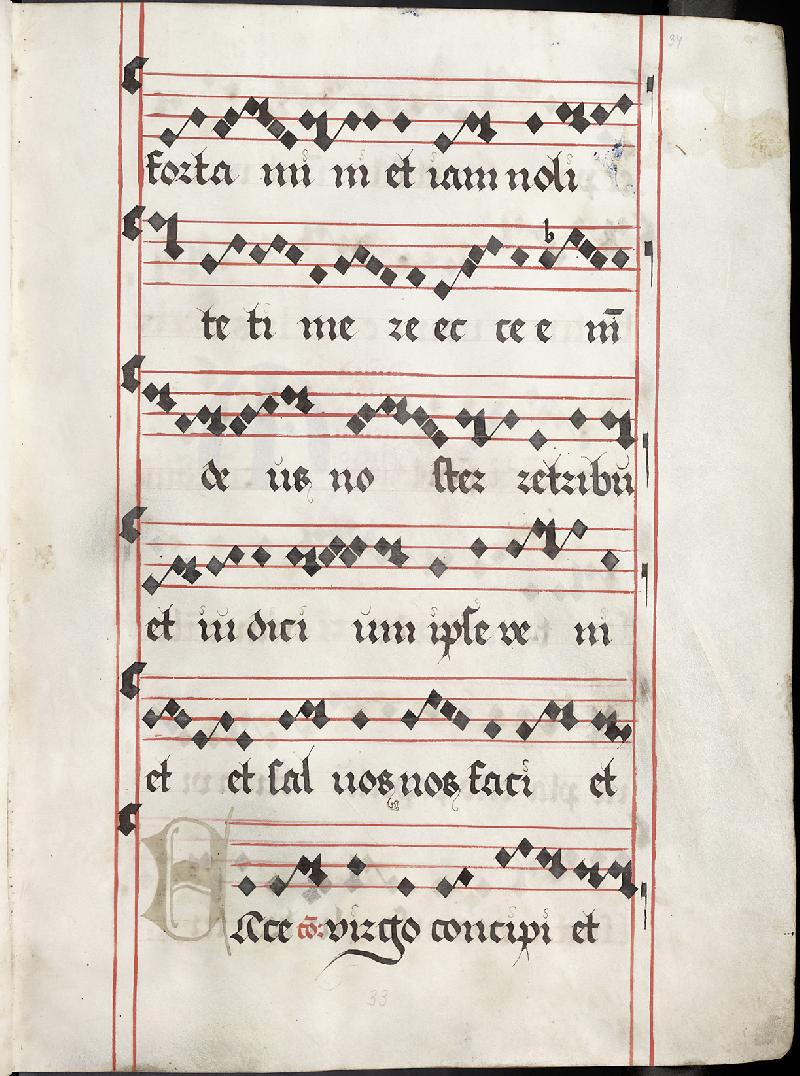 34
forta mi ni et iam noli
b
te ti me re ec ce e nī
de us no ster retribu
et iu dici um ipse ve ni
et et sal vos nos faci et
Ecce cō: virgo concipi et
33